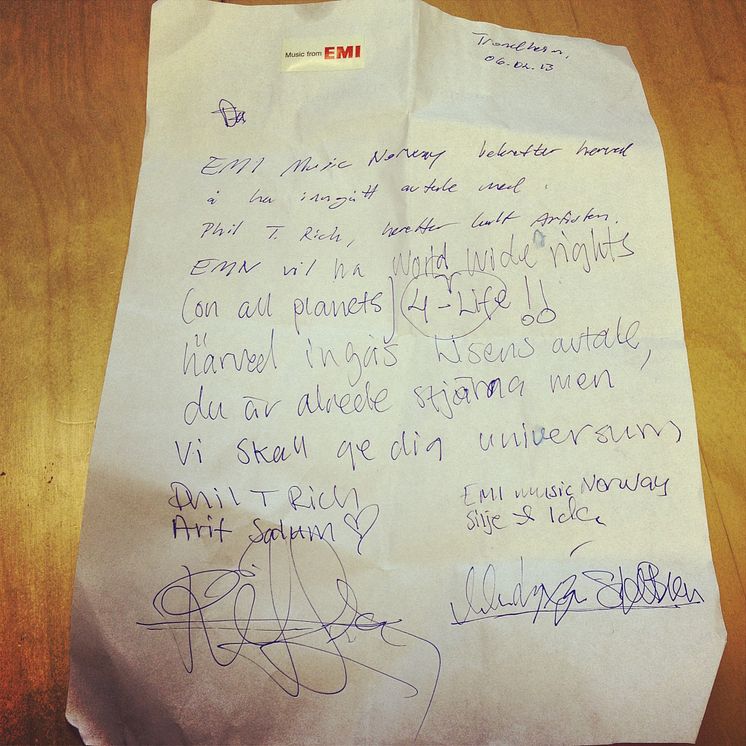 Music from EMI
Trondheim,
06.02.13
EMI Music Norway bekrefter herved
å ha inngått avtale med
Phil T. Rich, heretter kalt Artisten.
EMN vil ha world wide rights
(on all planets) 4-Life!!
härved ingås lisens avtale,
du är alrede stjärna men
vi skall ge dig universum,
Phil T Rich
Arif Salum
EMI music Norway
Silje & Ida